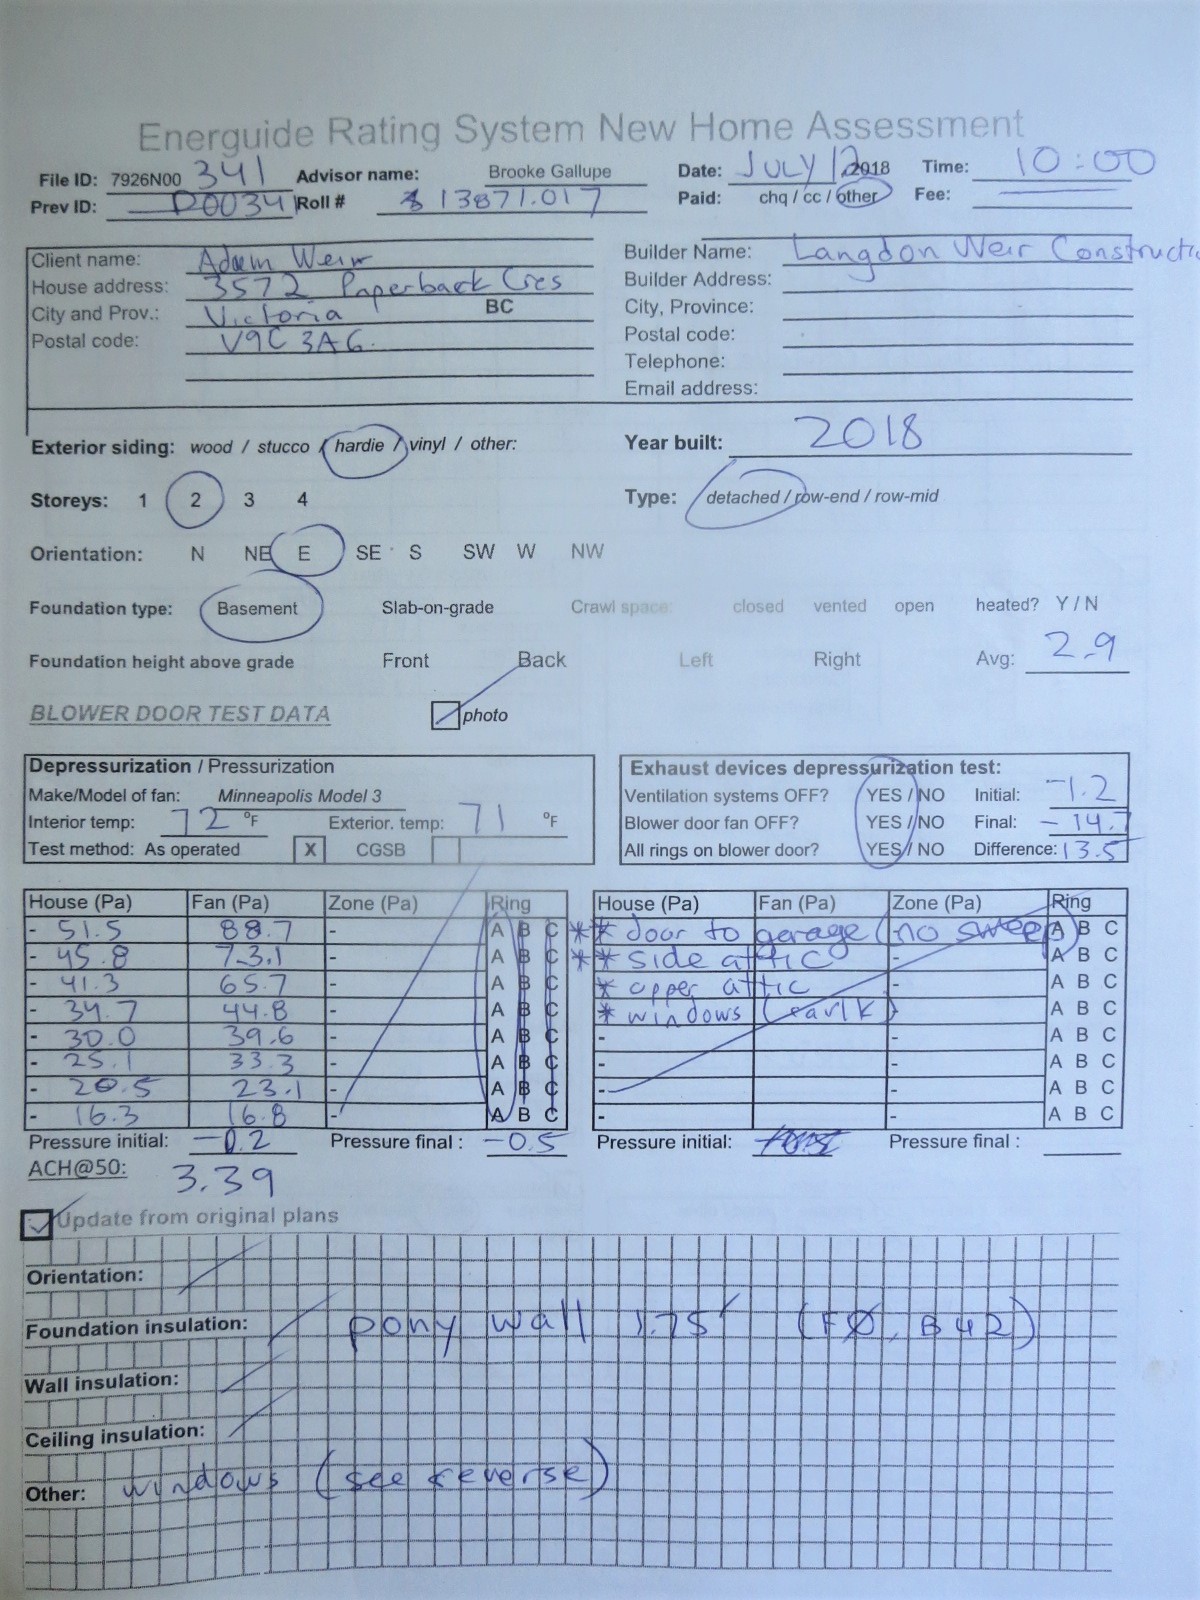 Energuide Rating System New Home Assessment
File ID: 7926N00 341 Advisor name: Brooke Gallupe Date: JULY 12, 2018 Time: 10:00
Prev ID: P00341 Roll # 13871.017 Paid: chq / cc / other Fee:
Client name: Adam Weir Builder Name: Langdon Weir Constructi
House address: 3572 Paperback Cres Builder Address:
City and Prov.: Victoria BC City, Province:
Postal code: V9C 3A6. Postal code:
Telephone:
Email address:
Exterior siding: wood / stucco / hardie / vinyl / other: Year built: 2018
Storeys: 1 2 3 4 Type: detached / row-end / row-mid
Orientation: N NE E SE S SW W NW
Foundation type: Basement Slab-on-grade Crawl space: closed vented open heated? Y / N
Foundation height above grade Front Back Left Right Avg: 2.9
BLOWER DOOR TEST DATA photo
Depressurization / Pressurization Exhaust devices depressurization test:
Make/Model of fan: Minneapolis Model 3 Ventilation systems OFF? YES / NO Initial: -1.2
Interior temp: 72 °F Exterior. temp: 71 °F Blower door fan OFF? YES / NO Final: -14.7
Test method: As operated X CGSB All rings on blower door? YES / NO Difference: 13.5
House (Pa) Fan (Pa) Zone (Pa) Ring House (Pa) Fan (Pa) Zone (Pa) Ring
- 51.5 88.7 - A B C ** door to garage (no sweep) A B C
- 45.8 73.1 - A B C ** side attic - A B C
- 41.3 65.7 - A B C * upper attic - A B C
- 34.7 44.8 - A B C * windows (caulk) - A B C
- 30.0 39.6 - A B C - - A B C
- 25.1 33.3 - A B C - - A B C
- 20.5 23.1 - A B C - - A B C
- 16.3 16.8 - A B C - - A B C
Pressure initial: -0.2 Pressure final : -0.5 Pressure initial: Pressure final :
ACH@50: 3.39
Update from original plans
Orientation:
Foundation insulation: pony wall 1.75' (FØ, B42)
Wall insulation:
Ceiling insulation:
Other: windows (see reverse)